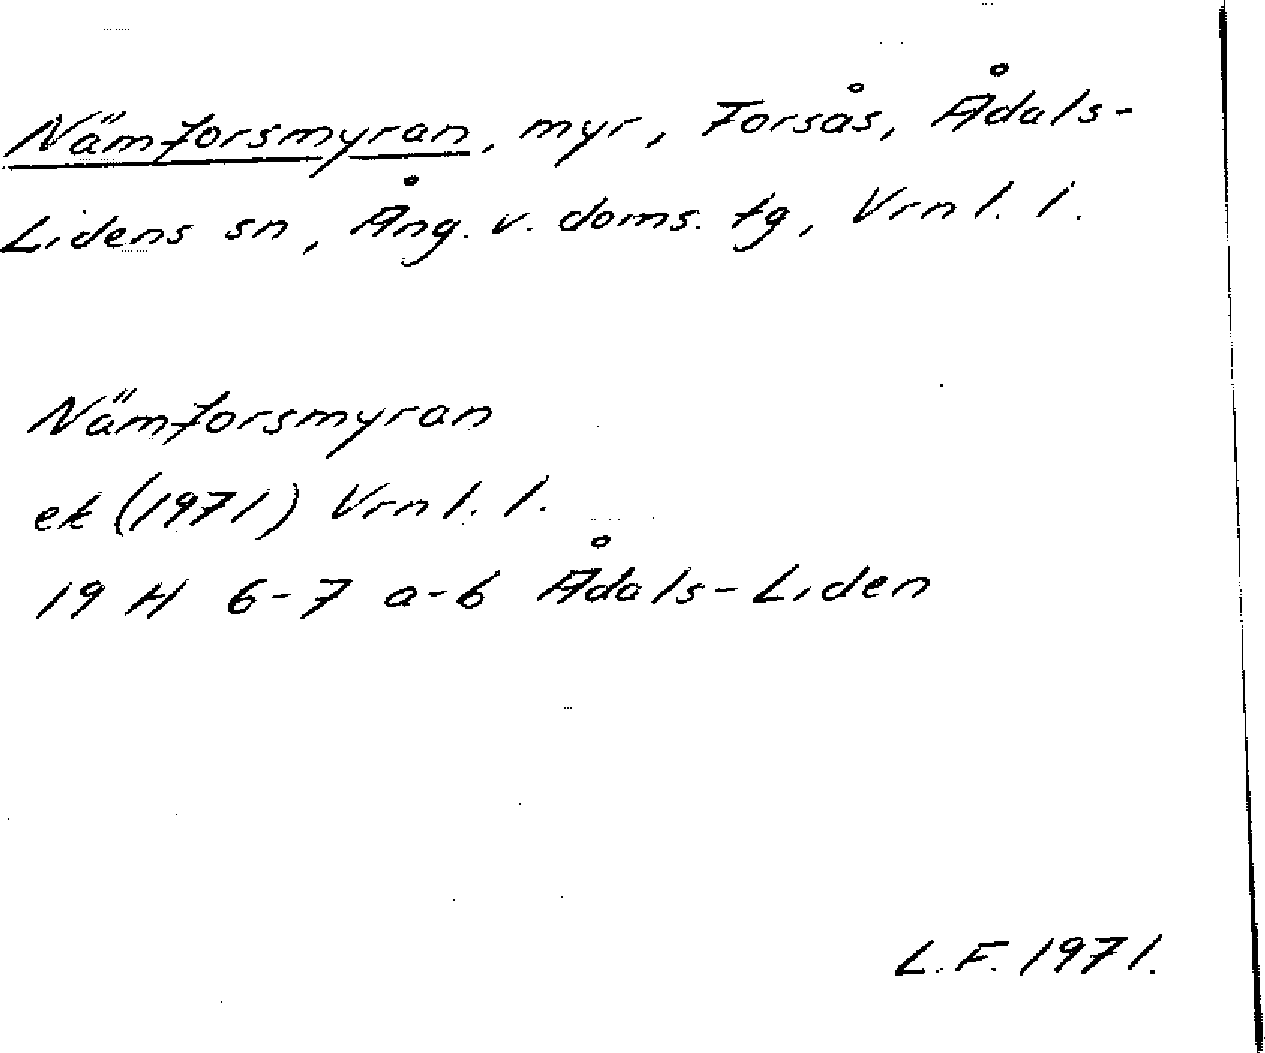 Nämforsmyran, myr, Forsås, Ådals-
Lidens sn, Ång. v. doms. tg, Vrnl. l.
Nämforsmyran
ek (1971) Vrnl. l.
19 H 6-7 a-b Ådals-Liden
L.F. 1971.